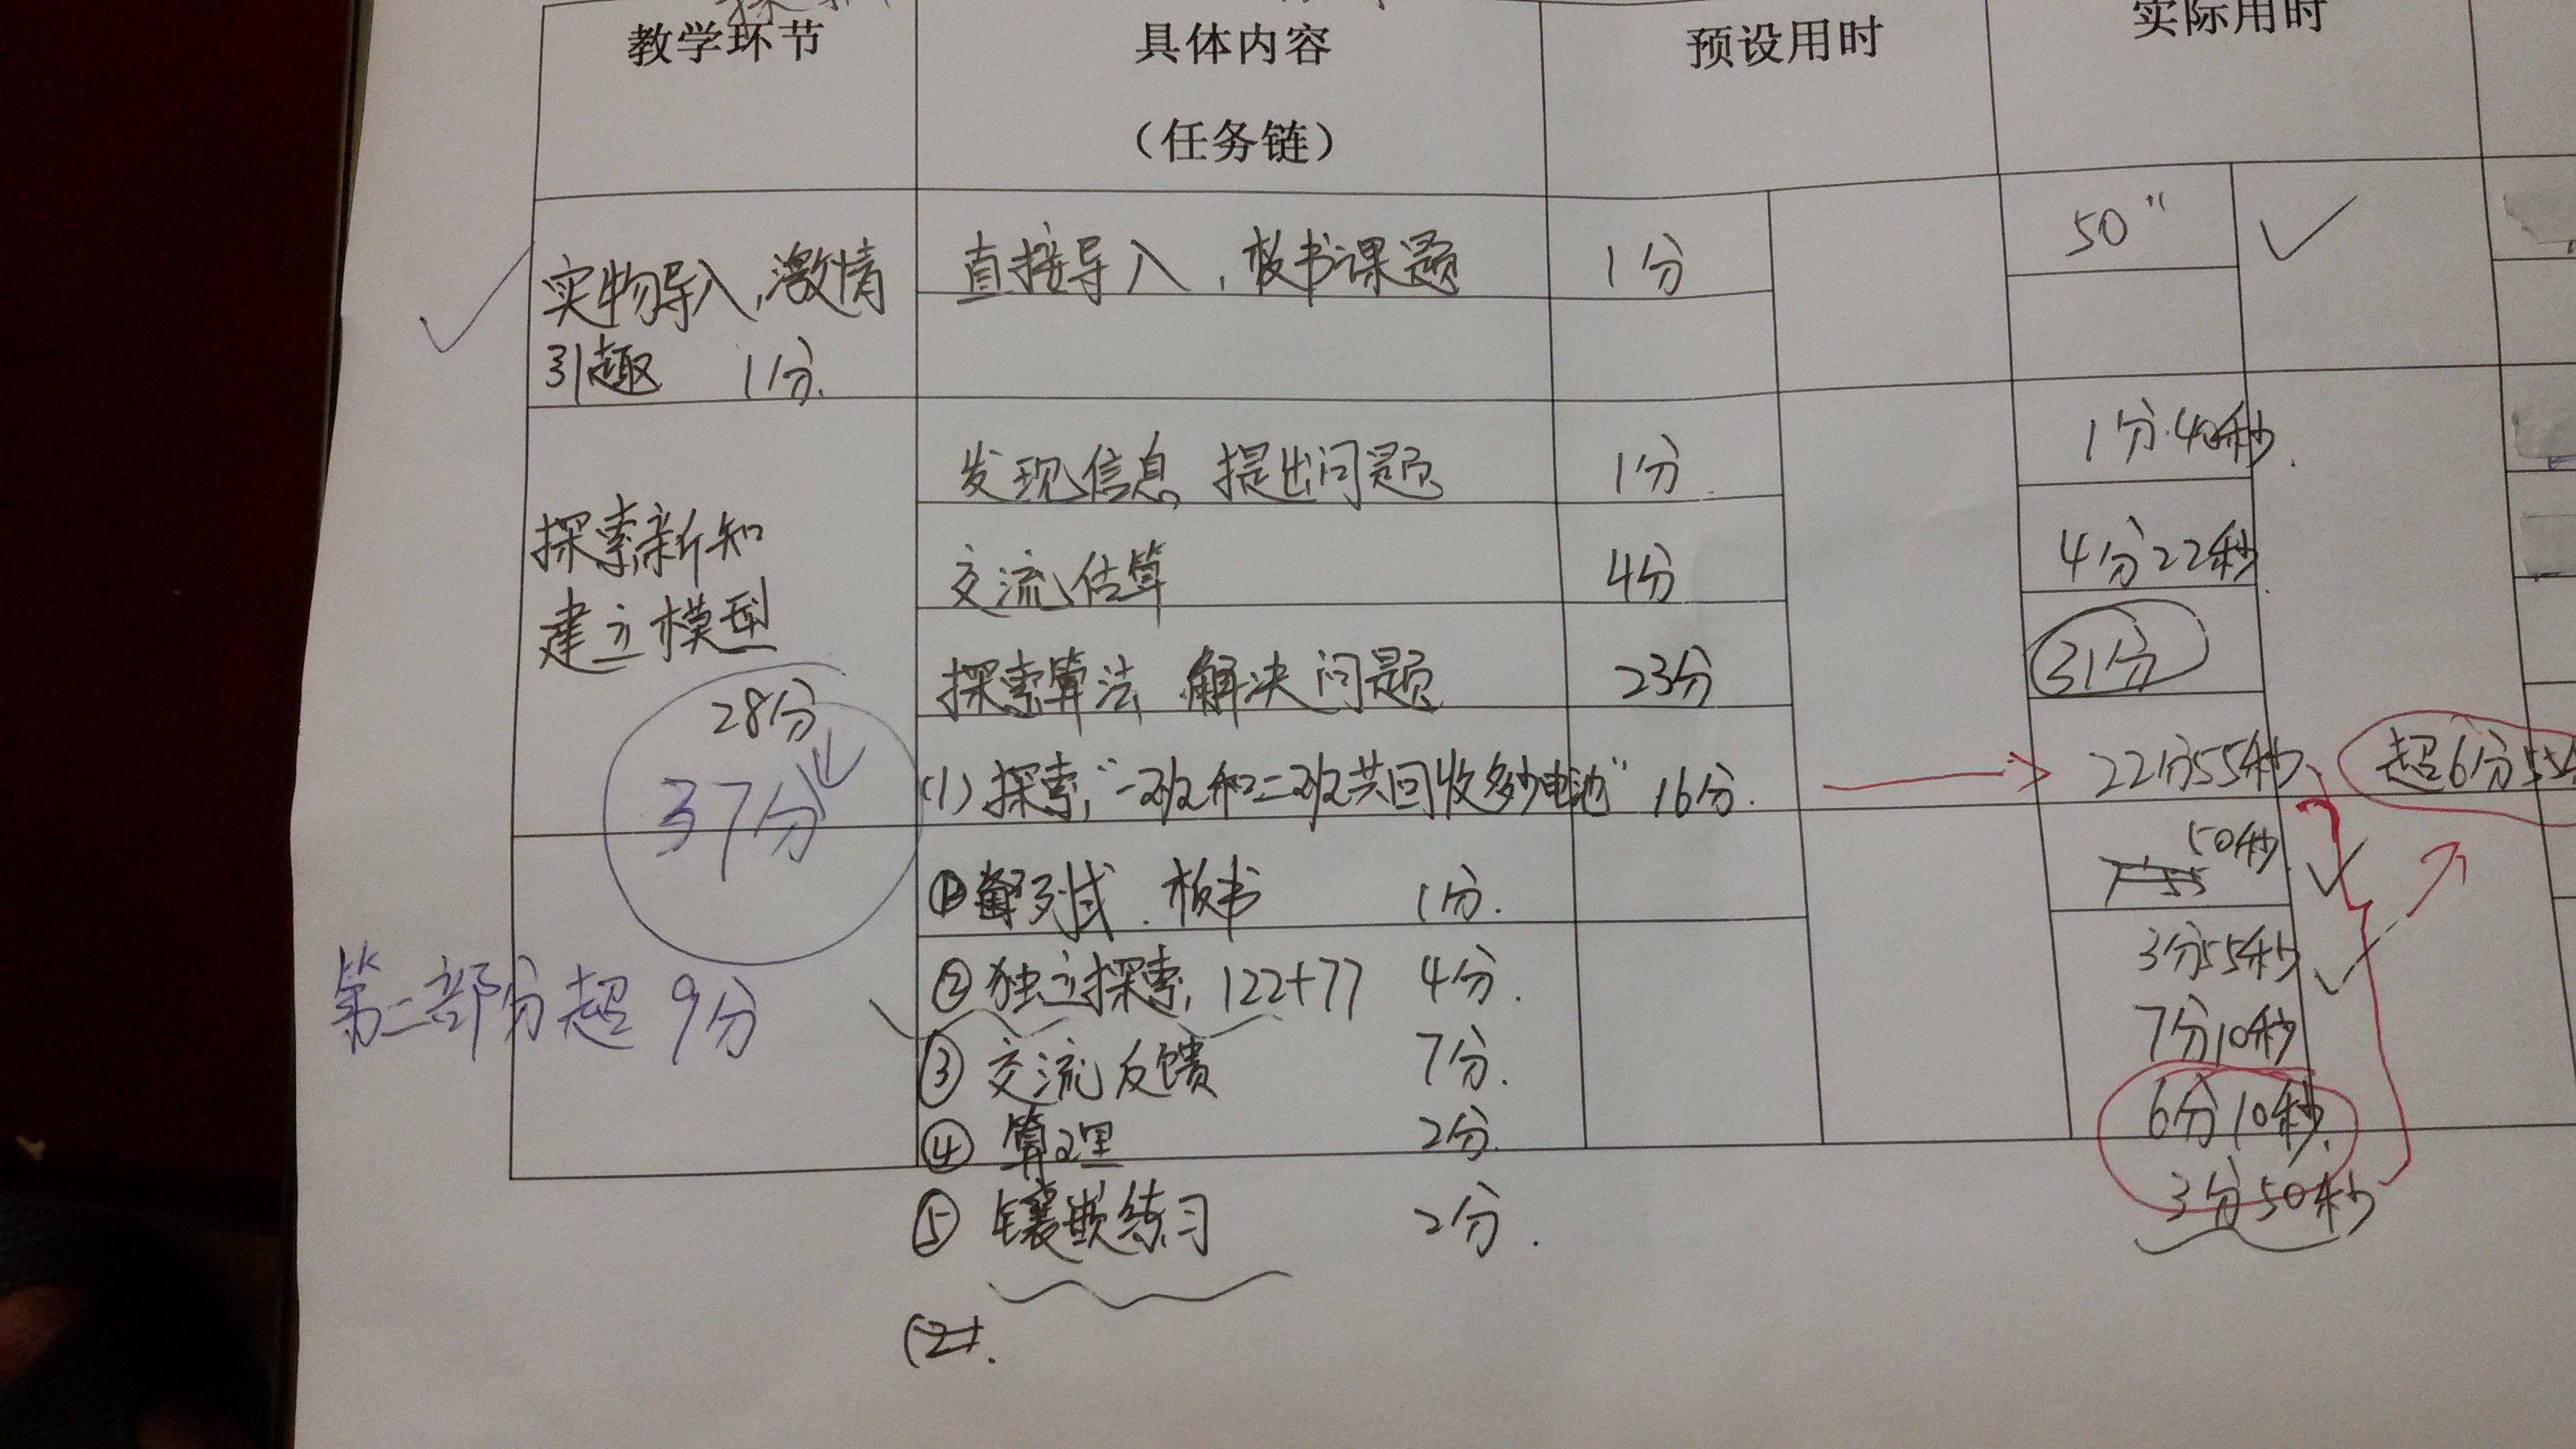 教学环节 具体内容 预设用时 实际用时
（任务链）
实物导入,激情 直接导入,板书课题 1分 50"
引趣 1分.
发现信息 提出问题 1分 1分40秒.
探索新知 交流估算 4分 4分22秒
建立模型
28分 探索算法 解决问题 23分 31分
37分 (1)探索"一班和二班共回收多少电池" 16分. 22分55秒 超6分55
①列式.板书 1分. 50秒
第二部分超9分 ②独立探索,122+77 4分. 3分55秒
③交流反馈 7分. 7分10秒
④算理 2分. 6分10秒.
⑤镶嵌练习 2分. 3分50秒
(2).